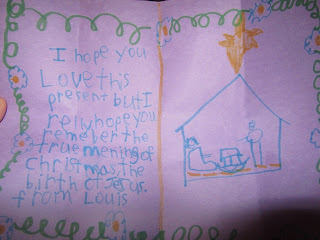 I hope you
Love this
present but I
rely hope you
remember the
true mening of
Christmas the
birth of Jesus.
from Louis